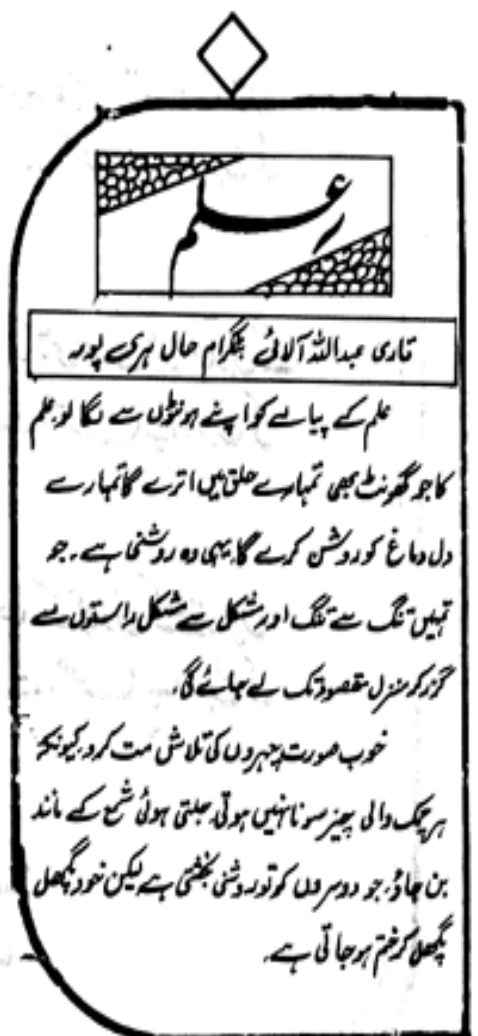 علم
قاری عبداللہ آلائی بٹگرام حال ہری پور
علم کے پیالے کو اپنے ہونٹوں سے لگا لو، علم
کا جو گھونٹ بھی تمہارے حلق میں اترے گا تمہارے
دل دماغ کو روشن کرے گا یہی وہ روشنی ہے۔ جو
تمہیں تنگ سے تنگ اور مشکل سے مشکل راستوں سے
گزر کر منزل مقصود تک لے جائے گی۔
خوب صورت چہروں کی تلاش مت کرو، کیونکہ
ہر چمک والی چیز سونا نہیں ہوتی۔ جلتی ہوئی شمع کے مانند
بن جاؤ، جو دوسروں کو تو روشنی بخشتی ہے لیکن خود پگھل
پگھل کر ختم ہو جاتی ہے۔